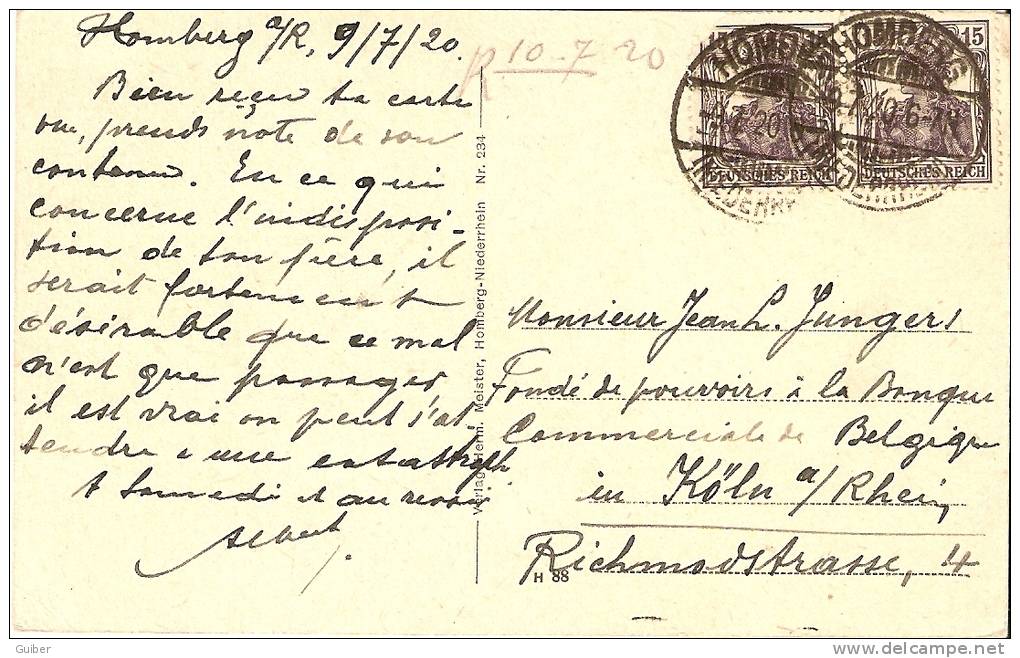 Homberg a/R, 9/7/20
Bien reçu ta carte
vue, prends note de son
contenu. En ce qui
concerne l'indisposi-
tion de ton père, il
serait fortement
désirable que ce mal
n'est que passager,
il est vrai on peut s'at-
tendre a une catastroph.
A samedi et au revoir
Albert
p 10-7 20
Verlag Herm. Meister, Homberg-Niederrhein Nr. 234
H 88
15
15
DEUTSCHES REICH
DEUTSCHES REICH
HOMBERG
HOMBERG
Monsieur Jean L. Jungers
Fondé de pouvoirs à la Banque
Commerciale de Belgique
in Köln a/Rhein,
Richmodstrasse, 4
Guiber
www.delcampe.net